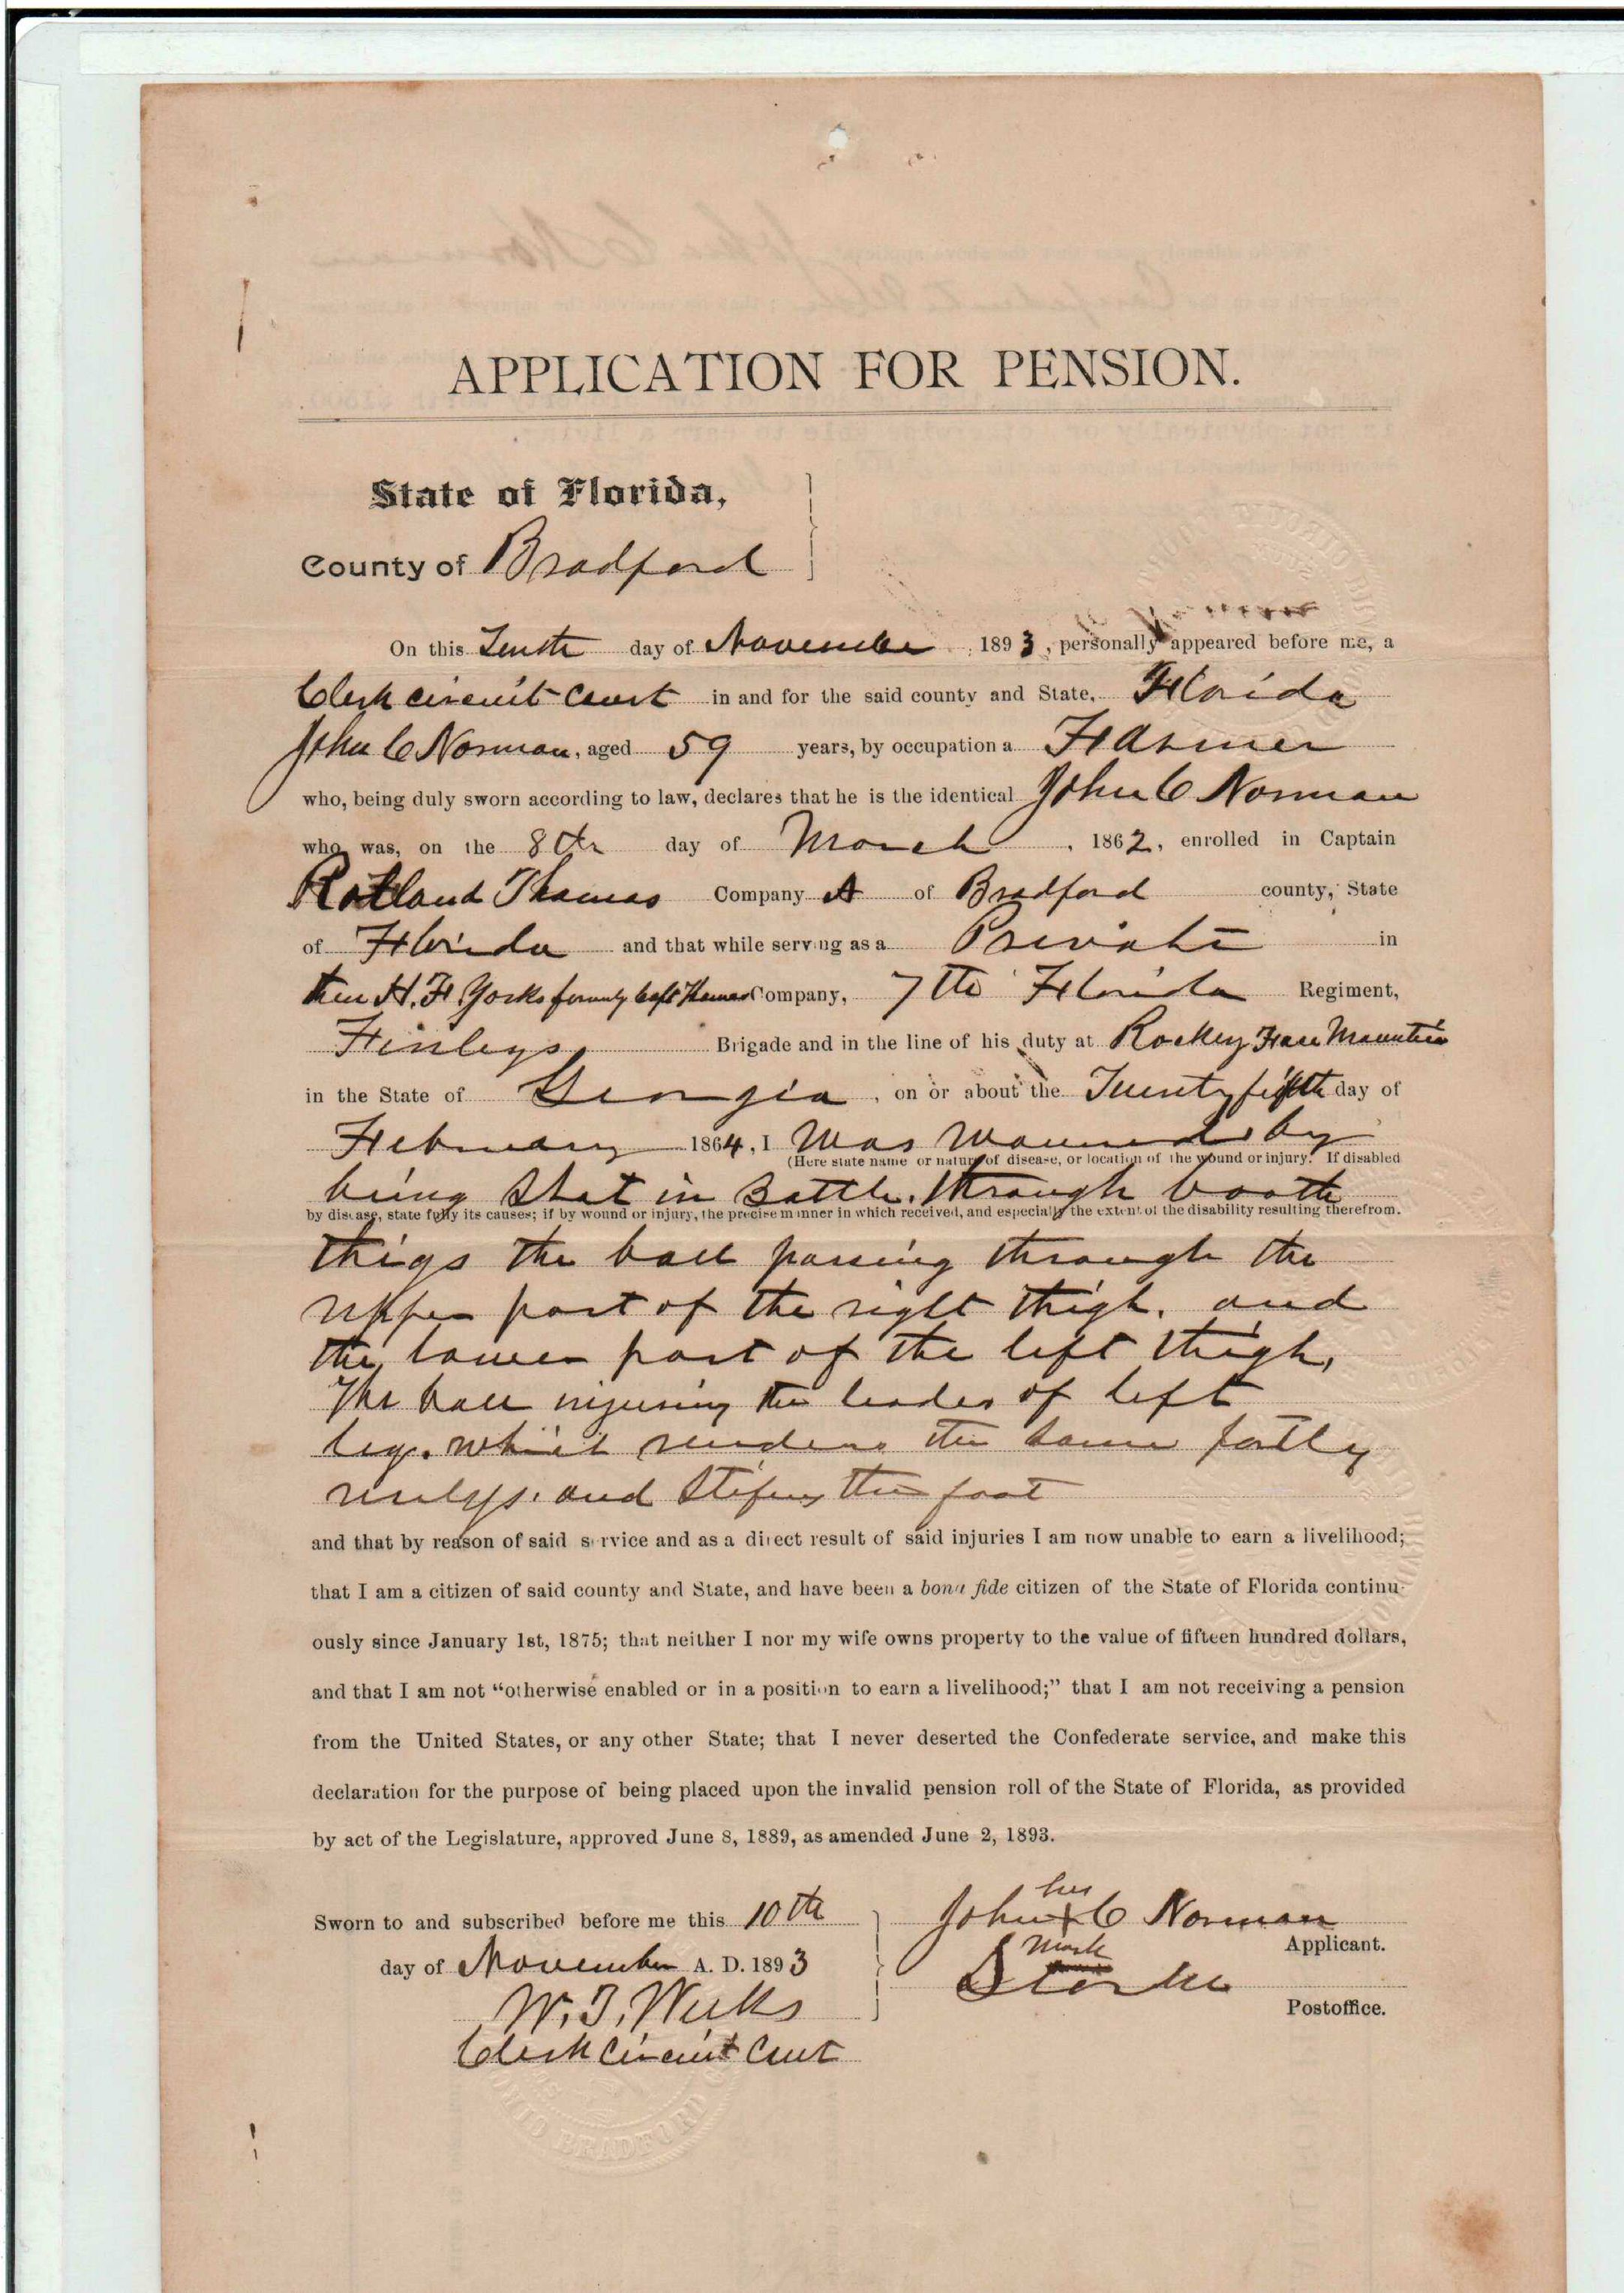 APPLICATION FOR PENSION.
State of Florida,
County of Bradford
On this Tenth day of November, 1893, personally appeared before me, a
Clerk circuit Court in and for the said county and State, Florida
John C Norman, aged 59 years, by occupation a Farmer
who, being duly sworn according to law, declares that he is the identical John C Norman
who was, on the 8th day of March, 1862, enrolled in Captain
Rolland Thomas Company A of Bradford county, State
of Florida and that while serving as a Private in
then H. F. Yorks formerly Capt Thomas Company, 7th Florida Regiment,
Finleys Brigade and in the line of his duty at Rockey Face Mountin
in the State of Georgia, on or about the Twenty fifth day of
February 1864, I was wounded by
(Here state name or nature of disease, or location of the wound or injury. If disabled
being Shot in Battle. through booth
by disease, state fully its causes; if by wound or injury, the precise manner in which received, and especially the extent of the disability resulting therefrom.
thigs the ball passing through the
upper part of the right thigh. and
the lower part of the left thigh,
The ball injuring the leader of left
leg. which renders the same partly
and Stifens the foot
and that by reason of said service and as a direct result of said injuries I am now unable to earn a livelihood;
that I am a citizen of said county and State, and have been a bona fide citizen of the State of Florida continu-
ously since January 1st, 1875; that neither I nor my wife owns property to the value of fifteen hundred dollars,
and that I am not “otherwise enabled or in a position to earn a livelihood;” that I am not receiving a pension
from the United States, or any other State; that I never deserted the Confederate service, and make this
declaration for the purpose of being placed upon the invalid pension roll of the State of Florida, as provided
by act of the Legislature, approved June 8, 1889, as amended June 2, 1893.
Sworn to and subscribed before me this 10th
day of November A. D. 1893
W. T. Weeks
Clerk Circuit Court
his
John X C Norman
mark
Applicant.
Starke
Postoffice.